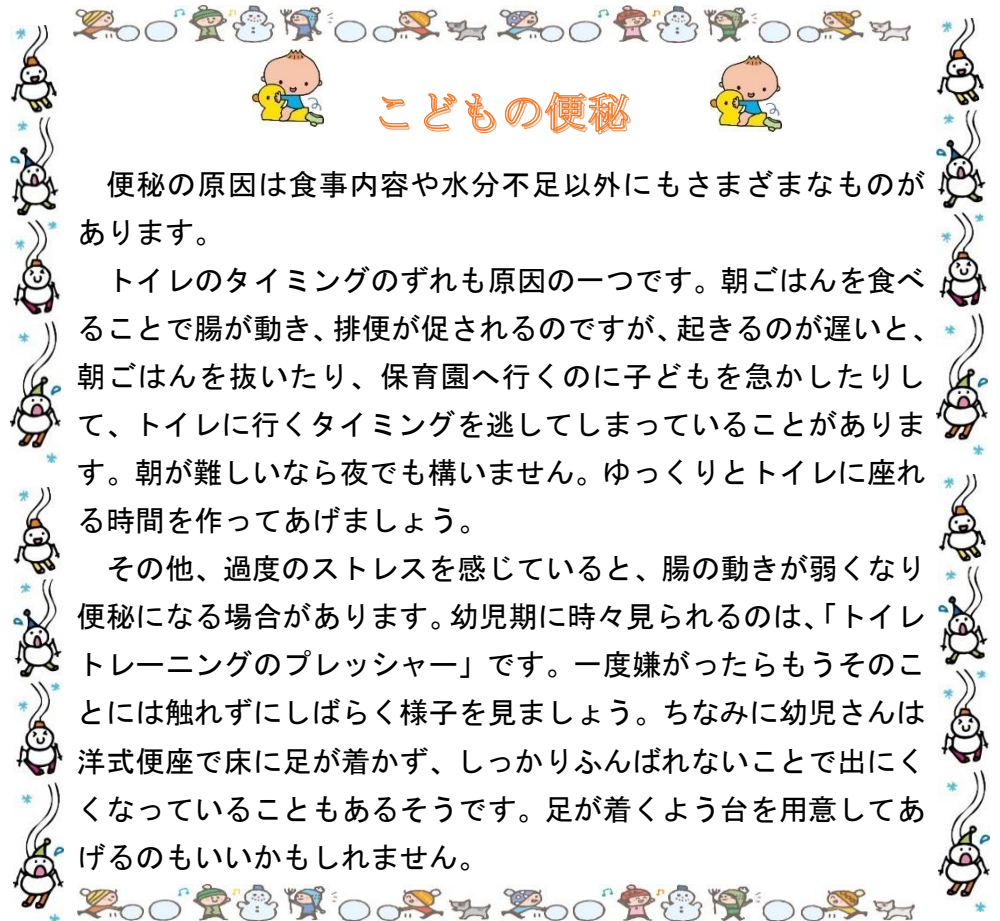 こどもの便秘
便秘の原因は食事内容や水分不足以外にもさまざまなものが
あります。
トイレのタイミングのずれも原因の一つです。朝ごはんを食べ
ることで腸が動き、排便が促されるのですが、起きるのが遅いと、
朝ごはんを抜いたり、保育園へ行くのに子どもを急かしたりし
て、トイレに行くタイミングを逃してしまっていることがありま
す。朝が難しいなら夜でも構いません。ゆっくりとトイレに座れ
る時間を作ってあげましょう。
その他、過度のストレスを感じていると、腸の動きが弱くなり
便秘になる場合があります。幼児期に時々見られるのは、「トイレ
トレーニングのプレッシャー」です。一度嫌がったらもうそのこ
とには触れずにしばらく様子を見ましょう。ちなみに幼児さんは
洋式便座で床に足が着かず、しっかりふんばれないことで出にく
くなっていることもあるそうです。足が着くよう台を用意してあ
げるのもいいかもしれません。